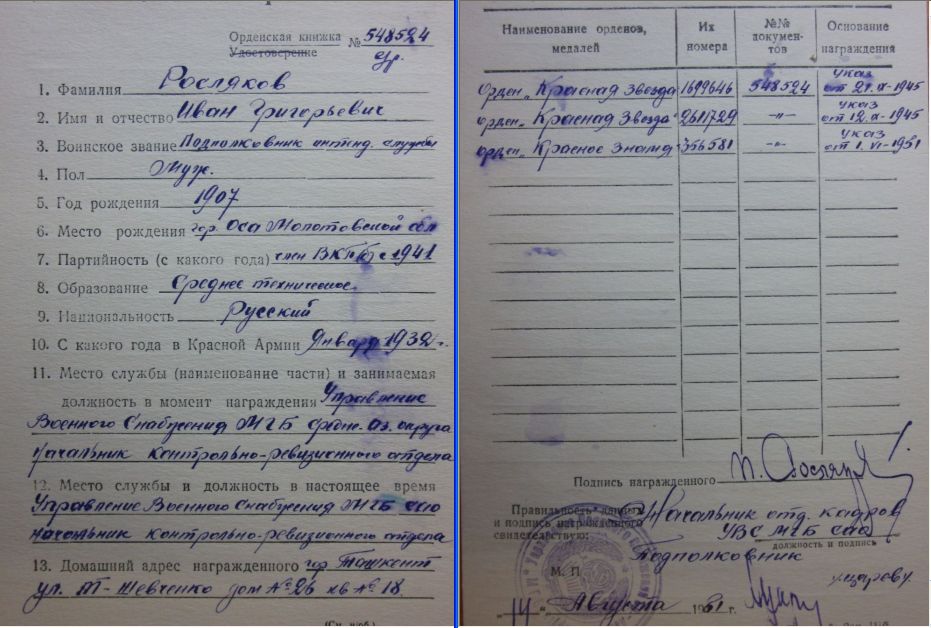 Орденская книжка № 548524
Удостоверение
1. Фамилия Росляков
2. Имя и отчество Иван Григорьевич
3. Воинское звание Подполковник интенд. службы
4. Пол Муж.
5. Год рождения 1907
6. Место рождения гор. Оса Молотовской обл
7. Партийность (с какого года) член ВКП(б) с 1941
8. Образование Среднее техническое
9. Национальность Русский
10. С какого года в Красной Армии Январь 1932 г.
11. Место службы (наименование части) и занимаемая
должность в момент награждения Управление
Военного Снабжения МГБ Средне-Аз. округа
Начальник контрольно-ревизионного отдела
12. Место службы и должность в настоящее время
Управление Военного Снабжения МГБ САО
начальник контрольно-ревизионного отдела
13. Домашний адрес награжденного гор. Ташкент
ул. Т-Шевченко дом № 26 кв № 18.
Наименование орденов, медалей
Их номера
№№ документов
Основание награждения
Орден „Красная Звезда 1699646 548524 Указ от 21. IX-1945
орден „Красная Звезда 2611729 -"- указ от 12. X-1945
орден „Красное Знамя 356581 -"- указ от 1. VI-1951
Подпись награжденного
Правильность данных
и подпись награжденного
свидетельствую:
Начальник отд. кадров
УВС МГБ САО
должность и подпись
Подполковник
М. П.
„14" Августа 1951 г.